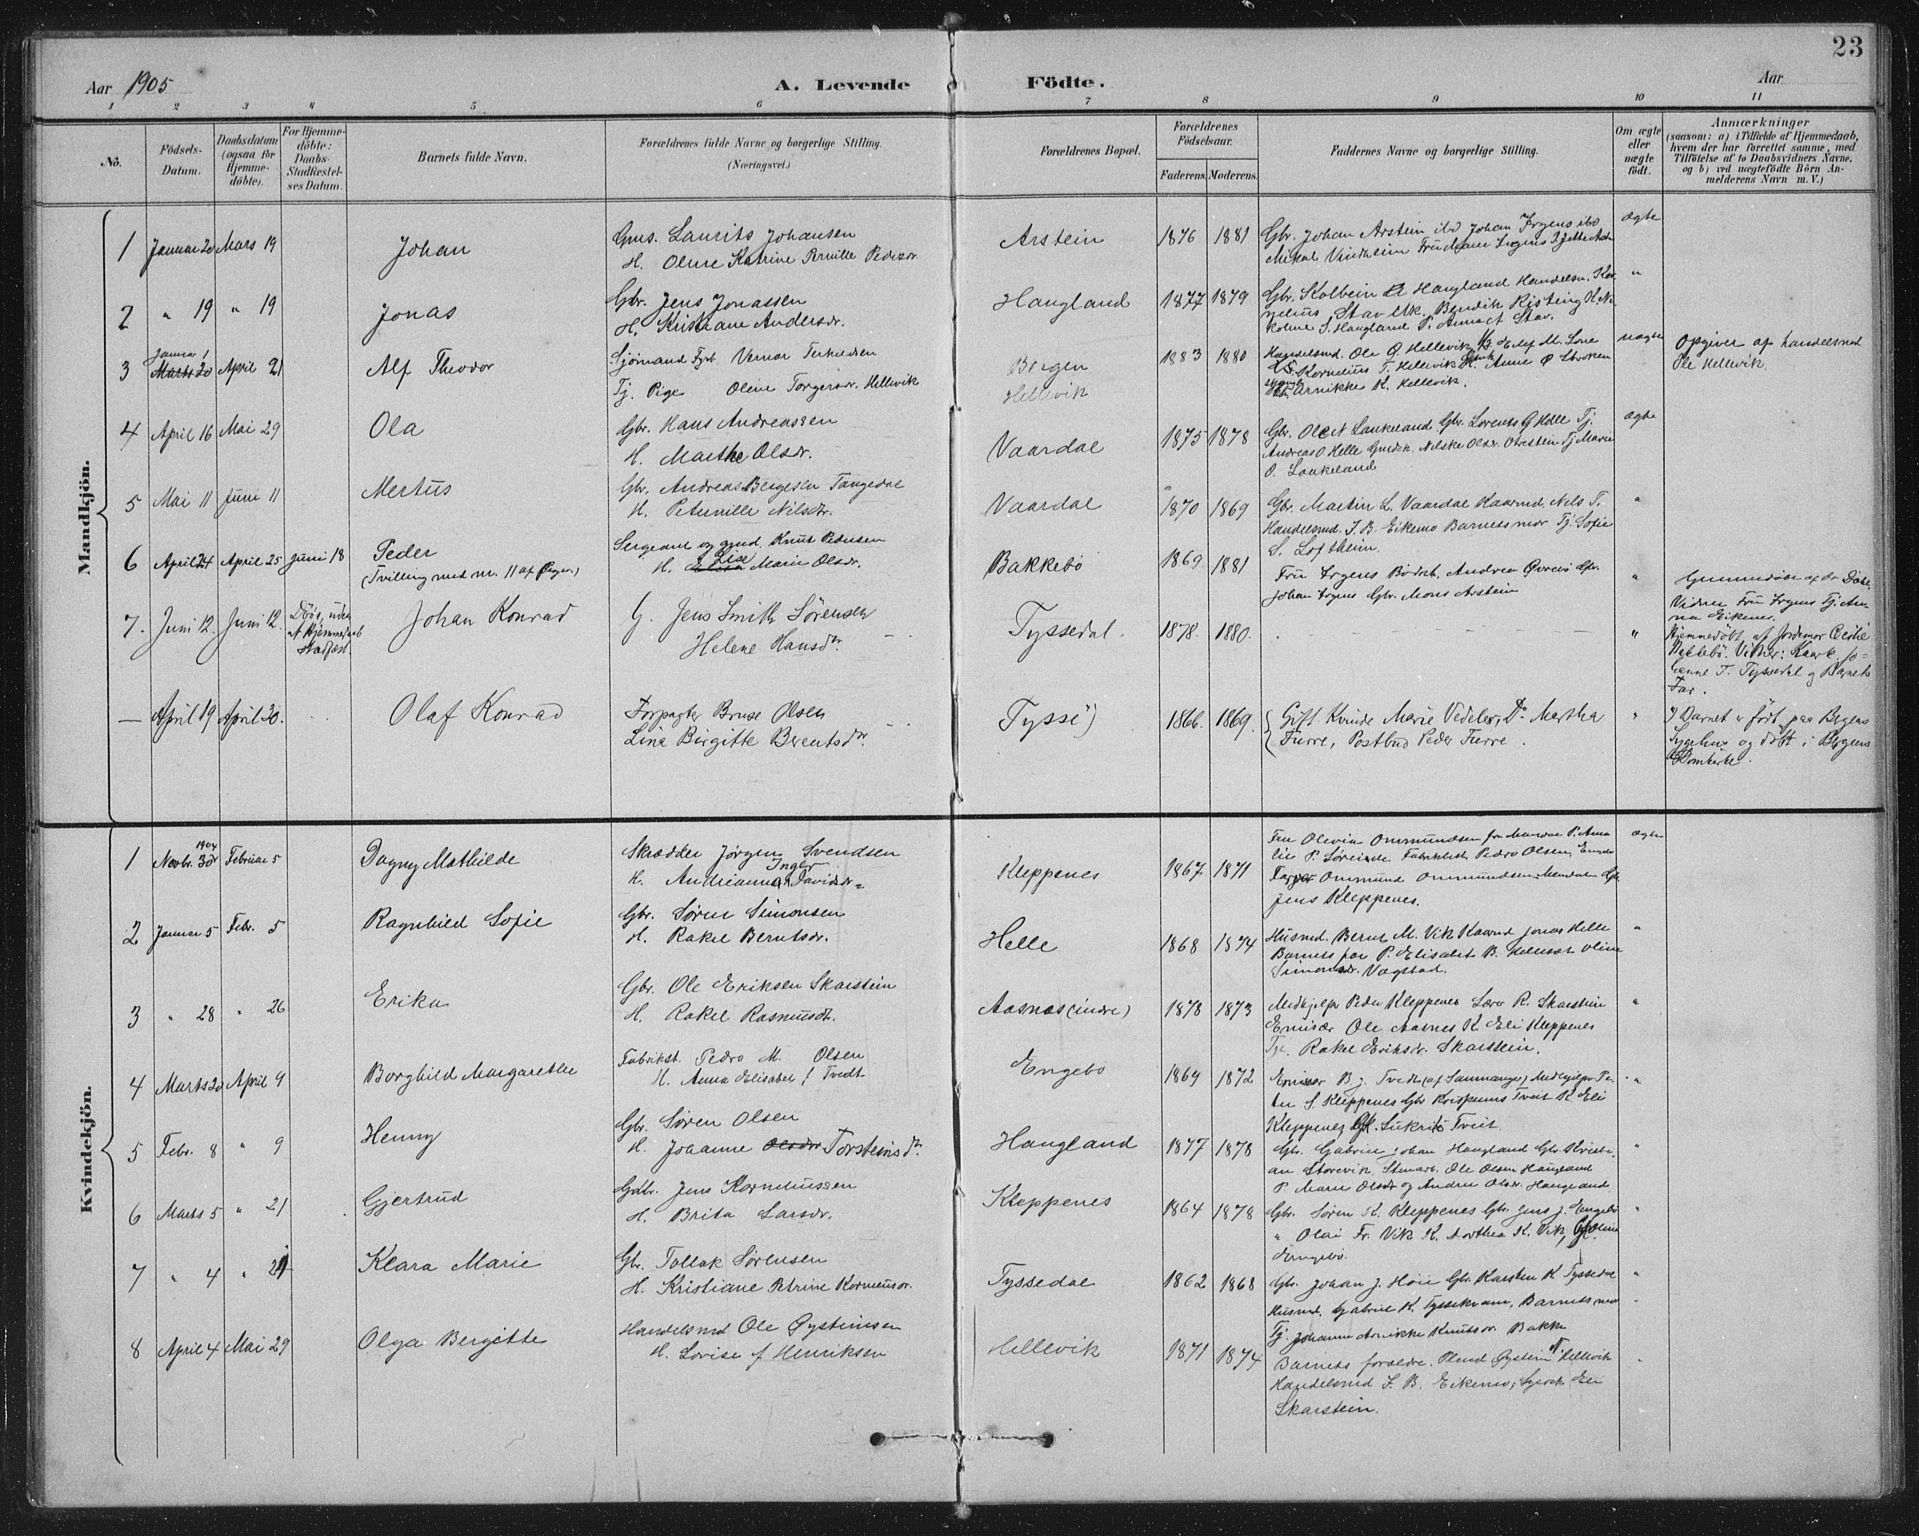 23
Aar 1905 A. Levende Födte. Aar
1 2 3 4 5 6 7 8 9 10 11
No.
Födsels-
Datum.
Daabsdatum
(ogsaa for
Hjemme-
döbte).
For Hjemme-
döbte:
Daabs-
Stadfæstel-
ses Datum.
Barnets fulde Navn.
Forældrenes fulde Navne og borgerlige Stilling.
(Næringsvei.)
Forældrenes Bopæl.
Forældrenes
Födselsaar.
Faderens. Moderens.
Faddernes Navne og borgerlige Stilling.
Om ægte
eller
uægte
födt.
Anmærkninger
(saasom: a) i Tilfælde af Hjemmedaab,
hvem der har forrettet samme, med
Tilföielse af to Daabsvidners Navne,
og b) ved uægtefödte Börn An-
melderens Navn m. V.)
Mandkjön.
1 Januar 20 Mars 19 Johan
Gms. Laurits Johansen
H. Oline Katrine Pernille Pedersdr
Arstein 1876 1881
Gbr. Johan Arstein Johan Irgens ibd
Mikal Vindheim Fru Irgens
ægte
2 " 19 " 19 Jonas
Gbr. Jens Jonassen
H. Kristiane Andersdr.
Haugland 1877 1879
Gbr. Kolbein Haugland Handelsm. Kor
nelius Stav Bendik Risting
S. Haugland P. Anna Stav.
"
3 Januar 1
Marts 20 April 21 Alf Theodor
Sjömand Fyrb. Verner Terkildsen
Tj. Pige Oline Torgersdr. Hellevik
Bergen
Hellevik
1883 1880
Handelsmd. Ole Ø. Hellevik M.
Kornelius T. Hellevik Anne Ø
K. Hellevik.
uægte
Opgiver af handelsmd
Ole Hellevik.
4 April 16 Mai 29 Ola
Gbr. Hans Andreassen
H. Marthe Olsdr.
Vaardal 1875 1878
Gbr. Laukeland Gbr. Lorents Helle Tj.
Andreas O Helle Nilske Olsdr Arstein Tj Marie
O. Laukeland
ægte
5 Mai 11 Juni 11 Mertus
Gbr. Andreas Bergesen Tangedal
H. Peternille Nilsdr.
Vaardal 1870 1869
Gbr. Martin L. Vaardal Kaarmd. Nils T.
Handelsmd. J. B. Eikemo Barnets mor Tj. Sofie
S. Loftheim.
"
6 April 24 April 25 Juni 18 Peder
(Tvilling med nr. 11 af Piger.)
Sergeant og gmd. Knut Pedersen
H. Lise Marie Olsdr.
Bakkebö 1869 1881
Fru Irgens Andrea Øvrebö Gbr.
Johan Irgens Gbr. Mons Arstein
"
Vidner Fru Irgens Tj. An
na Eikenes.
7. Juni 12. Juni 12. Johan Konrad
G. Jens Smith Sörensen
Helene Hansdtr.
Tyssedal. 1878. 1880.
"
Hjemmedöbt af Jordemor Cecilie
Bakkebö. Vidner:
T. Tyssedal og Barnets
Far.
— April 19 April 30. Olaf Konrad
Forpagter Brune Olsen
Lina Birgitte Berentsdtr.
Tysse 1866. 1869.
Gift Kvinde Marie Vedeler, Do Martha
Furre, Postbud Peder Furre.
"
Barnet er födt paa Bergens
Sygehus og döbt i Bergens
Domkirke.
Kvindekjön.
1 1904
Novbr. 30 Februar 5 Dagny Mathilde
Skrædder Jørgen Svendsen
H. Andrianna Inger Davidsdr.
Kleppenes 1867 1871
Fru Olevia Ommundsen P. Anna
P. Söreide Fabrikbest. Pedro Olsen, Engebö
Ommund Ommundsen Gbr.
Jens Kleppenes.
ægte
2 Januar 5 Febr. 5 Ragnhild Sofie
Gbr. Søren Simonsen
H. Rakel Berntsdr.
Helle 1868 1874
Husmd. Bernt M. Vik Kaarmd Jonas Helle
Barnets far P. Elisabet B. Oline
Simonsdr. Vagstad.
"
3 " 28 " 26 Erika
Gbr. Ole Eriksen Skarstein
H. Rakel Rasmusdt.
Aasnæs (indre) 1878 1873
Medhjelper Peder Kleppenes Lærer R. Skarstein
Emisær Ole Aasnes K. Eli Kleppenes
Rakel Eriksdr. Skarstein.
"
4 Marts 20 April 9 Borghild Margarethe
Fabrikst. Pedro M. Olsen
H. Anna Elisabet f. Tvedt
Engebö 1869 1872
Emisær B. J. Tvedt (af Samnanger) Medhjelper Pe-
der S. Kleppenes Gbr Tveit K. Eli
Kleppenes Tveit.
"
5 Febr. 8 " 9 Henny
Gbr. Søren Olsen
H. Johanne Olsdr Torsteinsdtr.
Haugland 1877 1878
Gbr. Gabriel Johan Haugland Gbr Kristi-
an Storevik Ole Olsen Haugland
P. Marie Olsdr og Andrea Olsdr. Haugland
"
6 Marts 5 " 21 Gjertrud
Gdbr. Jens Korneliussen
H. Brita Larsdr.
Kleppenes 1864 1878
Gbr. Søren K. Kleppenes Gbr. Jens J. Engebö
" Olai Fr. Vik K. Dorthea K. Vik,
Engebö.
"
7 " 4 " 21 Klara Marie
Gbr. Tollak Sørensen
H. Kristiane Petrine Korneliusdr.
Tyssedal 1862 1868
Gbr. Johan J. Høie Gbr Karsten K. Tyssedal
Husmd. Gabriel K. Tyssekvam, Barnets mor
Tj. Johanne Knutsdr Bakke
"
8 April 4 Mai 29 Olga Bergitte
Handelsmd Ole Øysteinsen
H. Lovise f Henriksen
Hellevik 1871 1874
Barnets forældre. Øystein Hellevik
Handelsmd J. B. Eikemo, Eli
Skarstein.
"